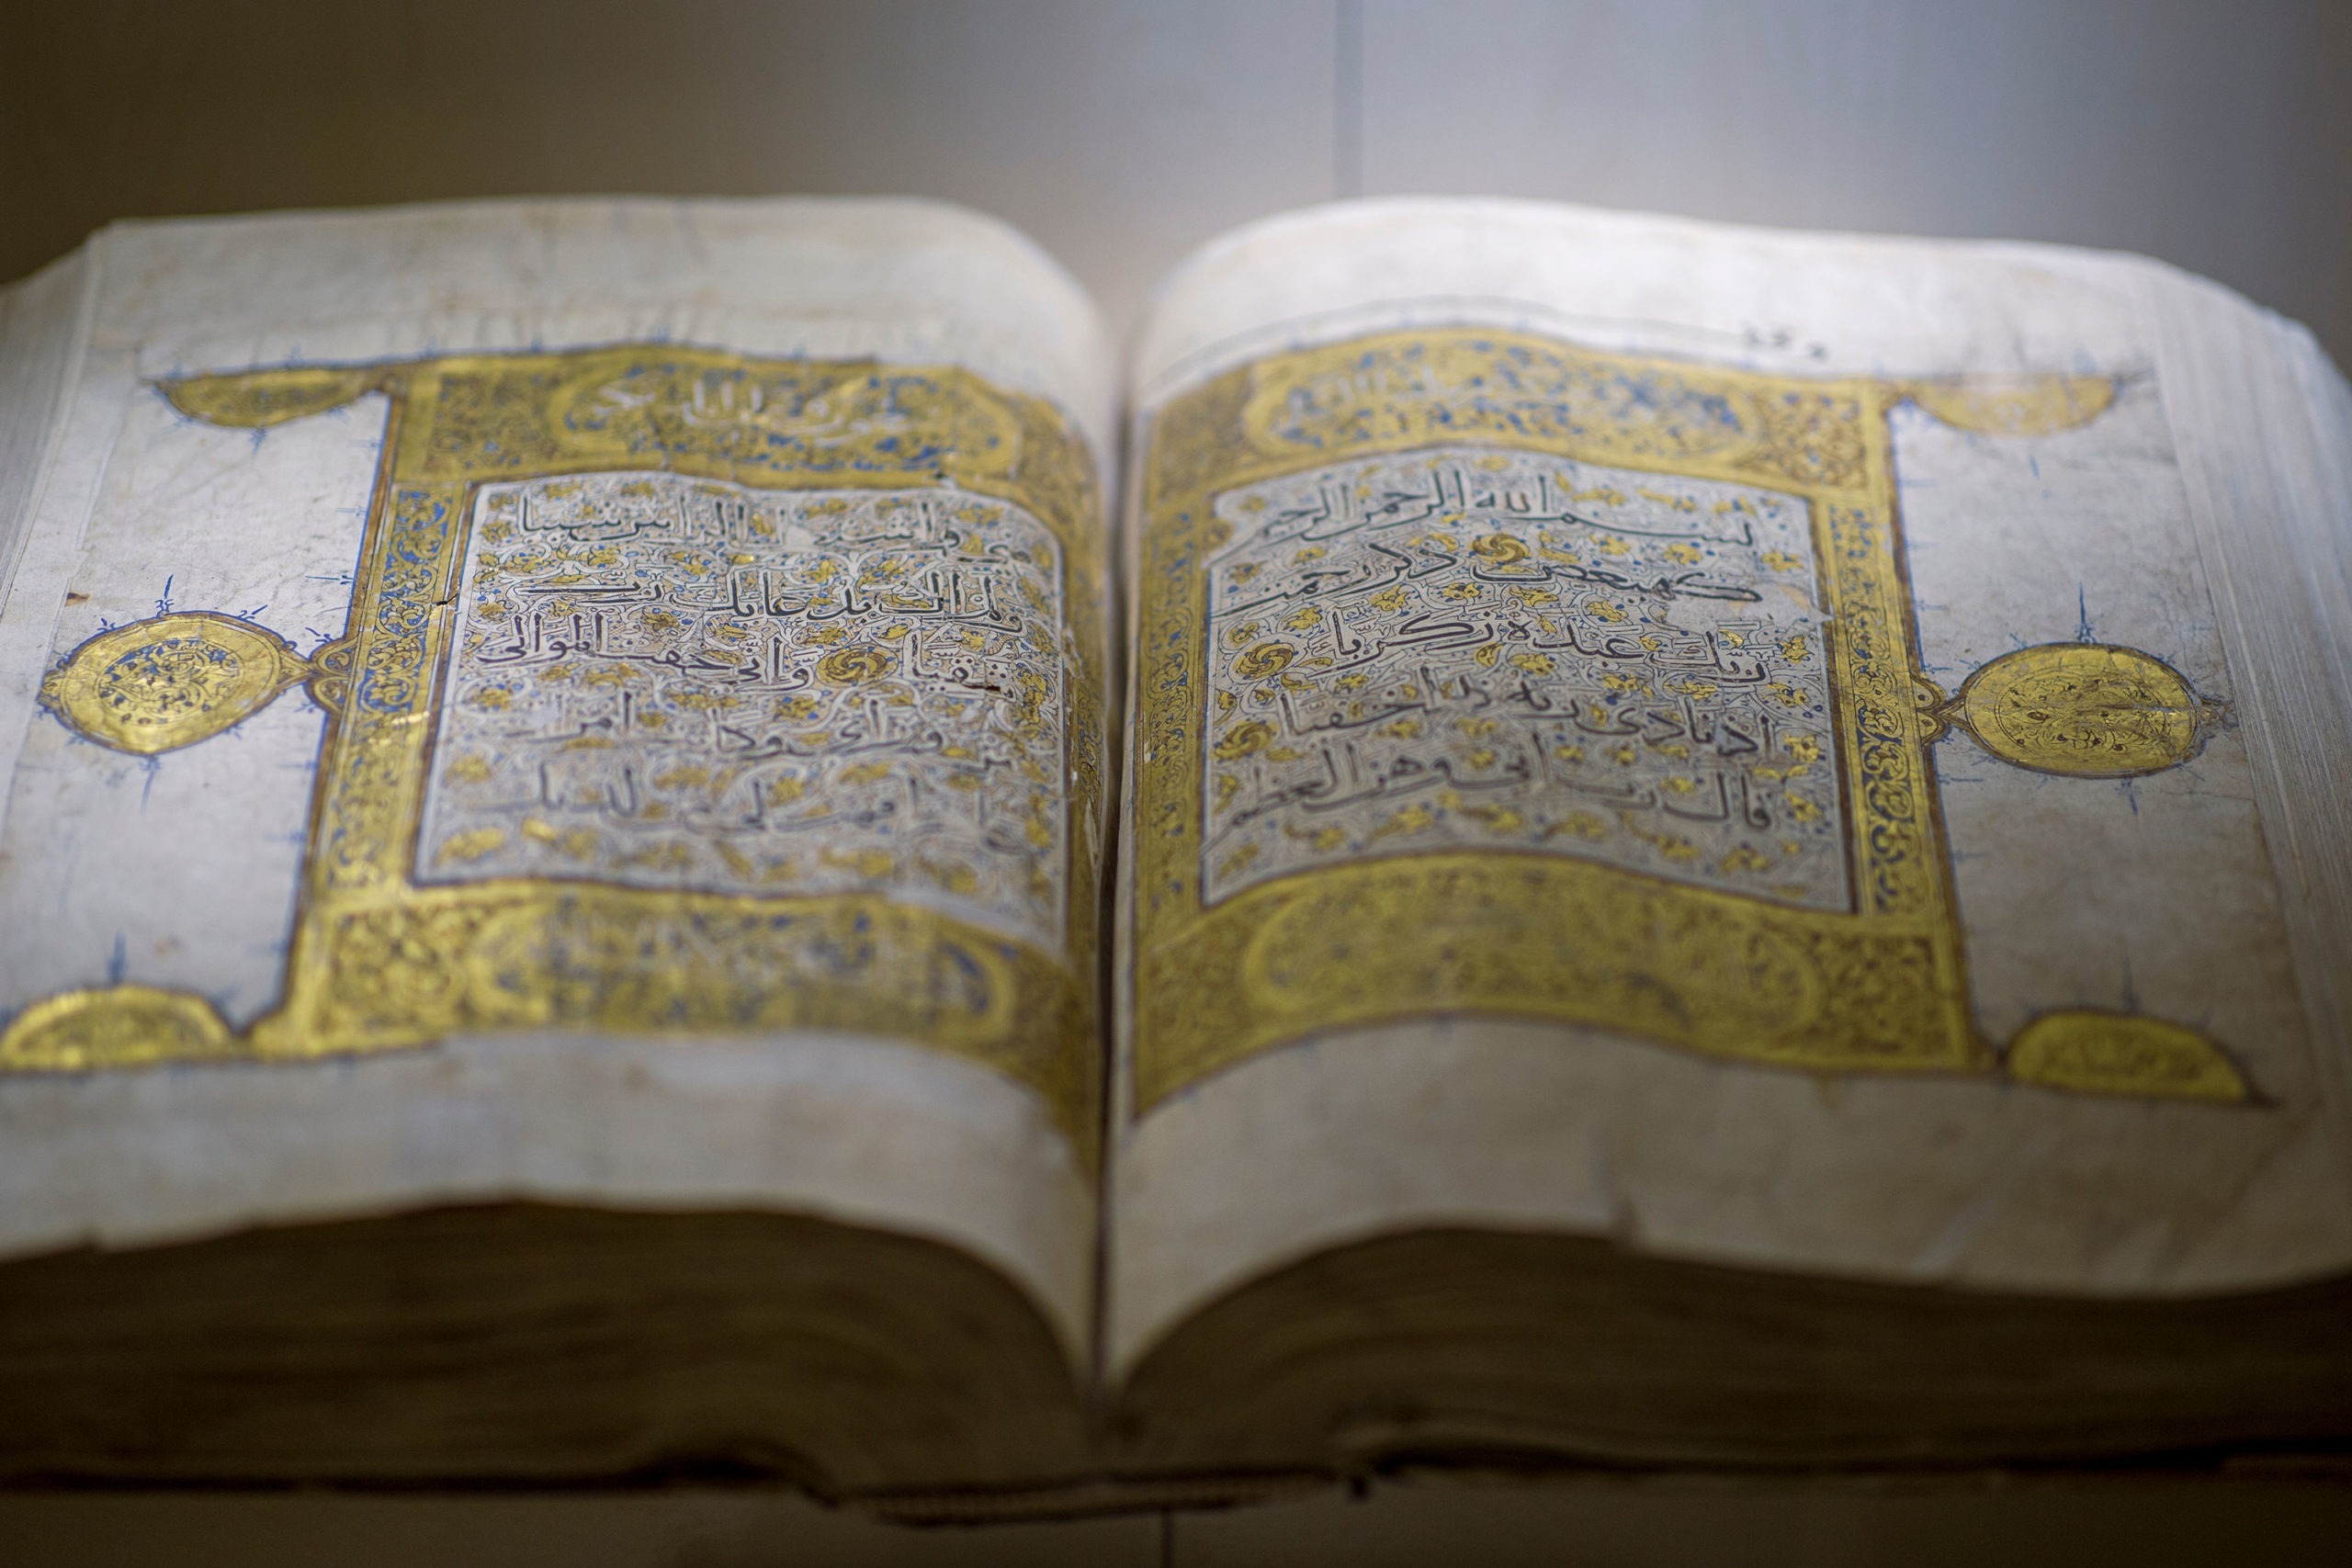 بسم الله الرحمن الرحيم
كهيعص ذكر رحمت
ربك عبده زكريا
اذ نادى ربه ندا خفيا
قال رب انى وهن العظم
منى واشتعل الراس شيبا
ولم اك بدعايك رب
شقيا وانى خفت الموالى
من وراى وكانت امراتى
عاقرا فهب لى من لدنك